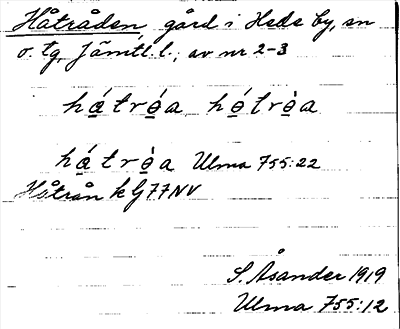 Håtråden, gård i Hede by, sn
o. tg, Jämtl. l.; av nr 2-3
há̱tró̱a hó̱trò̱a
há̱trò̱a Ulma 755:22
Håtrån k G77NV
S. Åsander 1919
Ulma 755:12